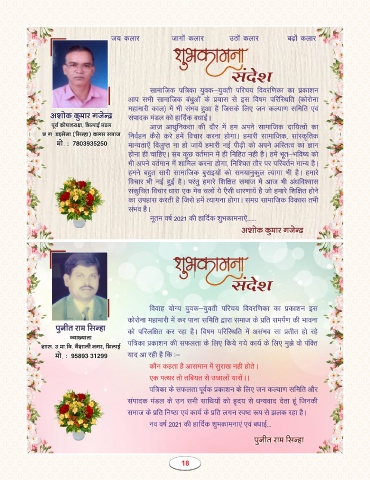 जय कलार जागों कलार उठों कलार बढ़ों कलार
शुभकामना
संदेश
सामाजिक पत्रिका युवक–युवती परिचय विवरणिका का प्रकाशन
आप सभी सामाजिक बंधुओं के प्रयास से इस विषम परिस्थिति (कोरोना
महामारी काल) में भी संभव हुआ है जिसके लिए जन कल्याण समिति एवं
संपादक मंडल को हार्दिक बधाई।
आज आधुनिकता की दौर में हम अपने सामाजिक दायित्वों का
निर्वहन कैसे करे हमें विचार करना होगा। हमारी सामाजिक, सांस्कृतिक
मान्यताऐं विलुप्त ना हो जायें हमारी नई पीढ़ी को अपने अस्तित्व का ज्ञान
होना ही चाहिए। सब कुछ वर्तमान में ही निहित नही है। हमें भूत–भविष्य को
भी अपने वर्तमान में शामिल करना होगा, निश्चित तौर पर परिवर्तन मान्य है।
हमने बहुत सारी सामाजिक बुराइयों को समयानुकूल त्यागा भी है। हमारे
विचार भी नई हुई है। परंतु हमारे शिक्षित समाज में आज भी अंधविश्वास
संकुचित विचार धारा एक मेव चलों ये ऐसी धारणाऐं है जो हमारे शिक्षित होने
का उपहास करती है जिसे हमें त्यागना होगा। समग्र सामाजिक विकास तभी
संभव है।
नूतन वर्ष 2021 की हार्दिक शुभकामनाऐं.....
अशोक कुमार गजेन्द्र
अशोक कुमार गजेन्द्र
पूर्व कोषाध्यक्ष, भिलाई नगर
छ.ग. डड़सेना (सिन्हा) कलार समाज
मो. : 7803935250
शुभकामना
संदेश
विवाह योग्य युवक–युवती परिचय विवरणिका का प्रकाशन इस
कोरोना महामारी में कर पाना समिति द्वारा समाज के प्रति समर्पण की भावना
को परिलक्षित कर रहा है। विषम परिस्थिति में असंभव सा प्रतीत हो रहे
पत्रिका प्रकाशन की सफलता के लिए किये गये कार्य के लिए मुझे वो पंक्ति
याद आ रही है कि :–
कौन कहता है आसमान में सुराख नही होते।
एक पत्थर तो तबियत से उछालों यारों।।
पत्रिका के सफलता पूर्वक प्रकाशन के लिए जन कल्याण समिति और
संपादक मंडल के उन सभी साथियों को हृदय से धन्यवाद देता हूं जिनकी
समाज के प्रति निष्ठा एवं कार्य के प्रति लगन स्पष्ट रूप से झलक रहा है।
नव वर्ष 2021 की हार्दिक शुभकामनाएं एवं बधाई...
पुनीत राम सिन्हा
पुनीत राम सिन्हा
व्याख्याता
शास. उ.मा.वि. वैशाली नगर, भिलाई
मो. : 95893 31299
16